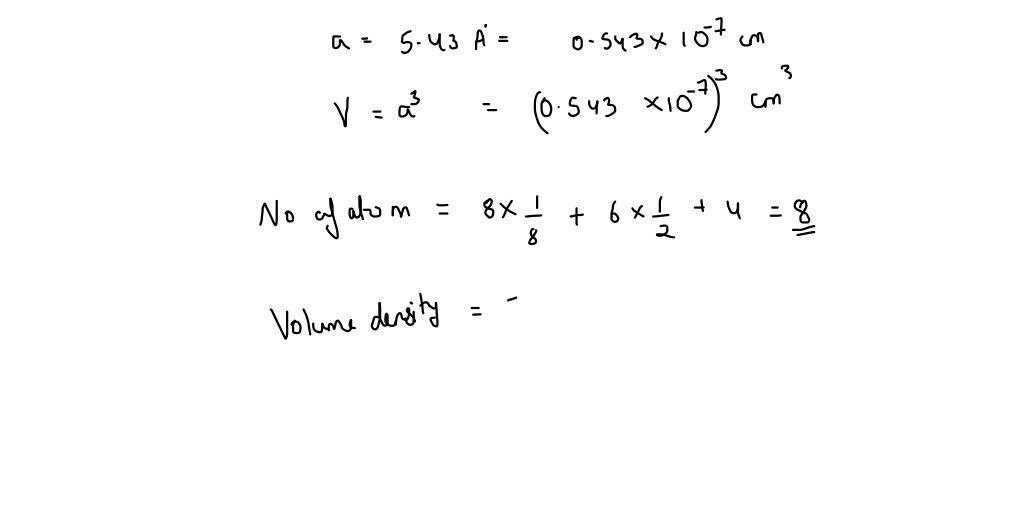 a = 5.43 A° = 0.543 × 10⁻⁷ cm
V = a³ = (0.543 × 10⁻⁷)³ cm³
No of atom = 8 × 1/8 + 6 × 1/2 + 4 = 8
Volume density =